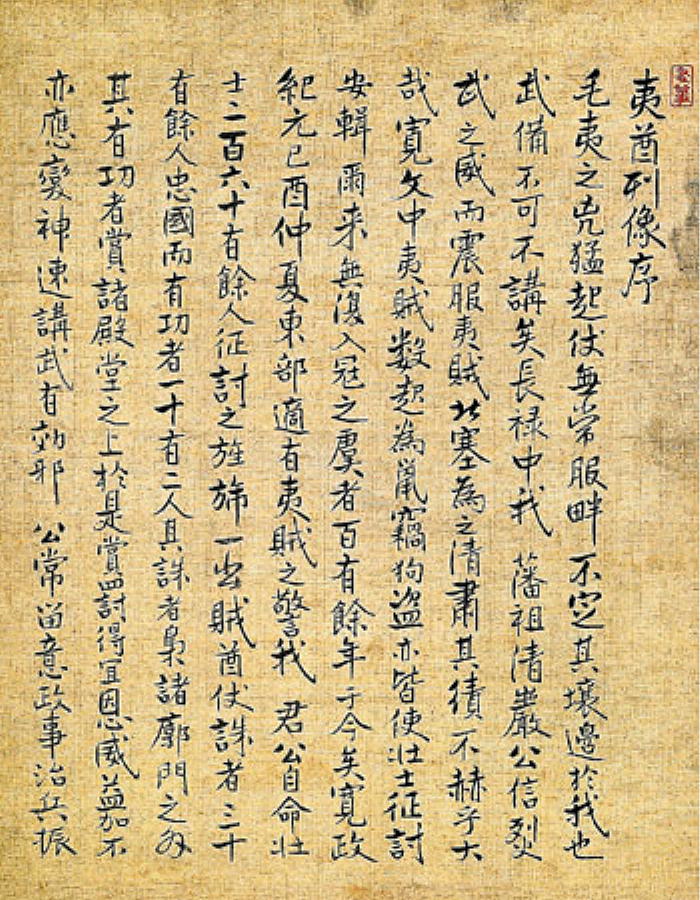 夷酋列像序
毛夷之兇猛起伏無常服畔不定其壤邊於我也
武備不可不講矣長禄中我 藩祖清巖公信烈
武之威而震服夷賊北塞為之清肅其績不赫乎大
哉寛文中夷賊数起為鼠竊狗盗亦皆使壮士征討
安輯爾来無復入冠之虞者百有餘年于今矣寛政
紀元己酉仲夏東部適有夷賊之警我 君公自命壮
士二百六十有餘人征討之旌旆一出賊酋伏誅者三十
有餘人忠國而有功者一十有二人其誅者梟諸廓門之外
其有功者賞諸殿堂之上於是賞罰討得宜恩威益加不
亦應變神速講武有効邪 公常留意政事治兵振